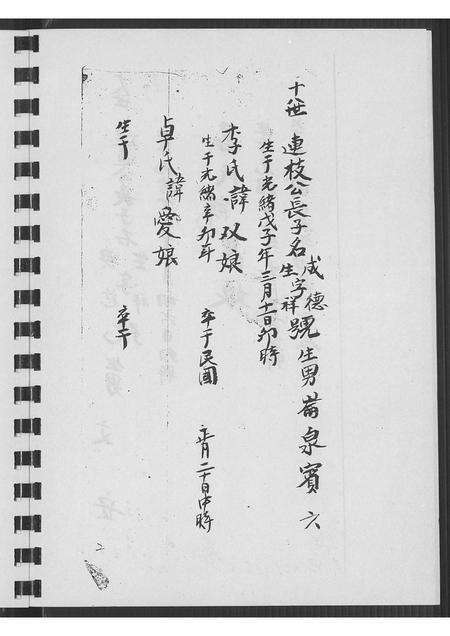 十世 連枝公長子名成德生字祥號 生男 泉 賓 六
生于光緒戊子年三月十一日卯時
李氏諱双娘
生于光緒辛卯年 卒于民國 正月二十日申時
卓氏諱愛娘
生于 卒于